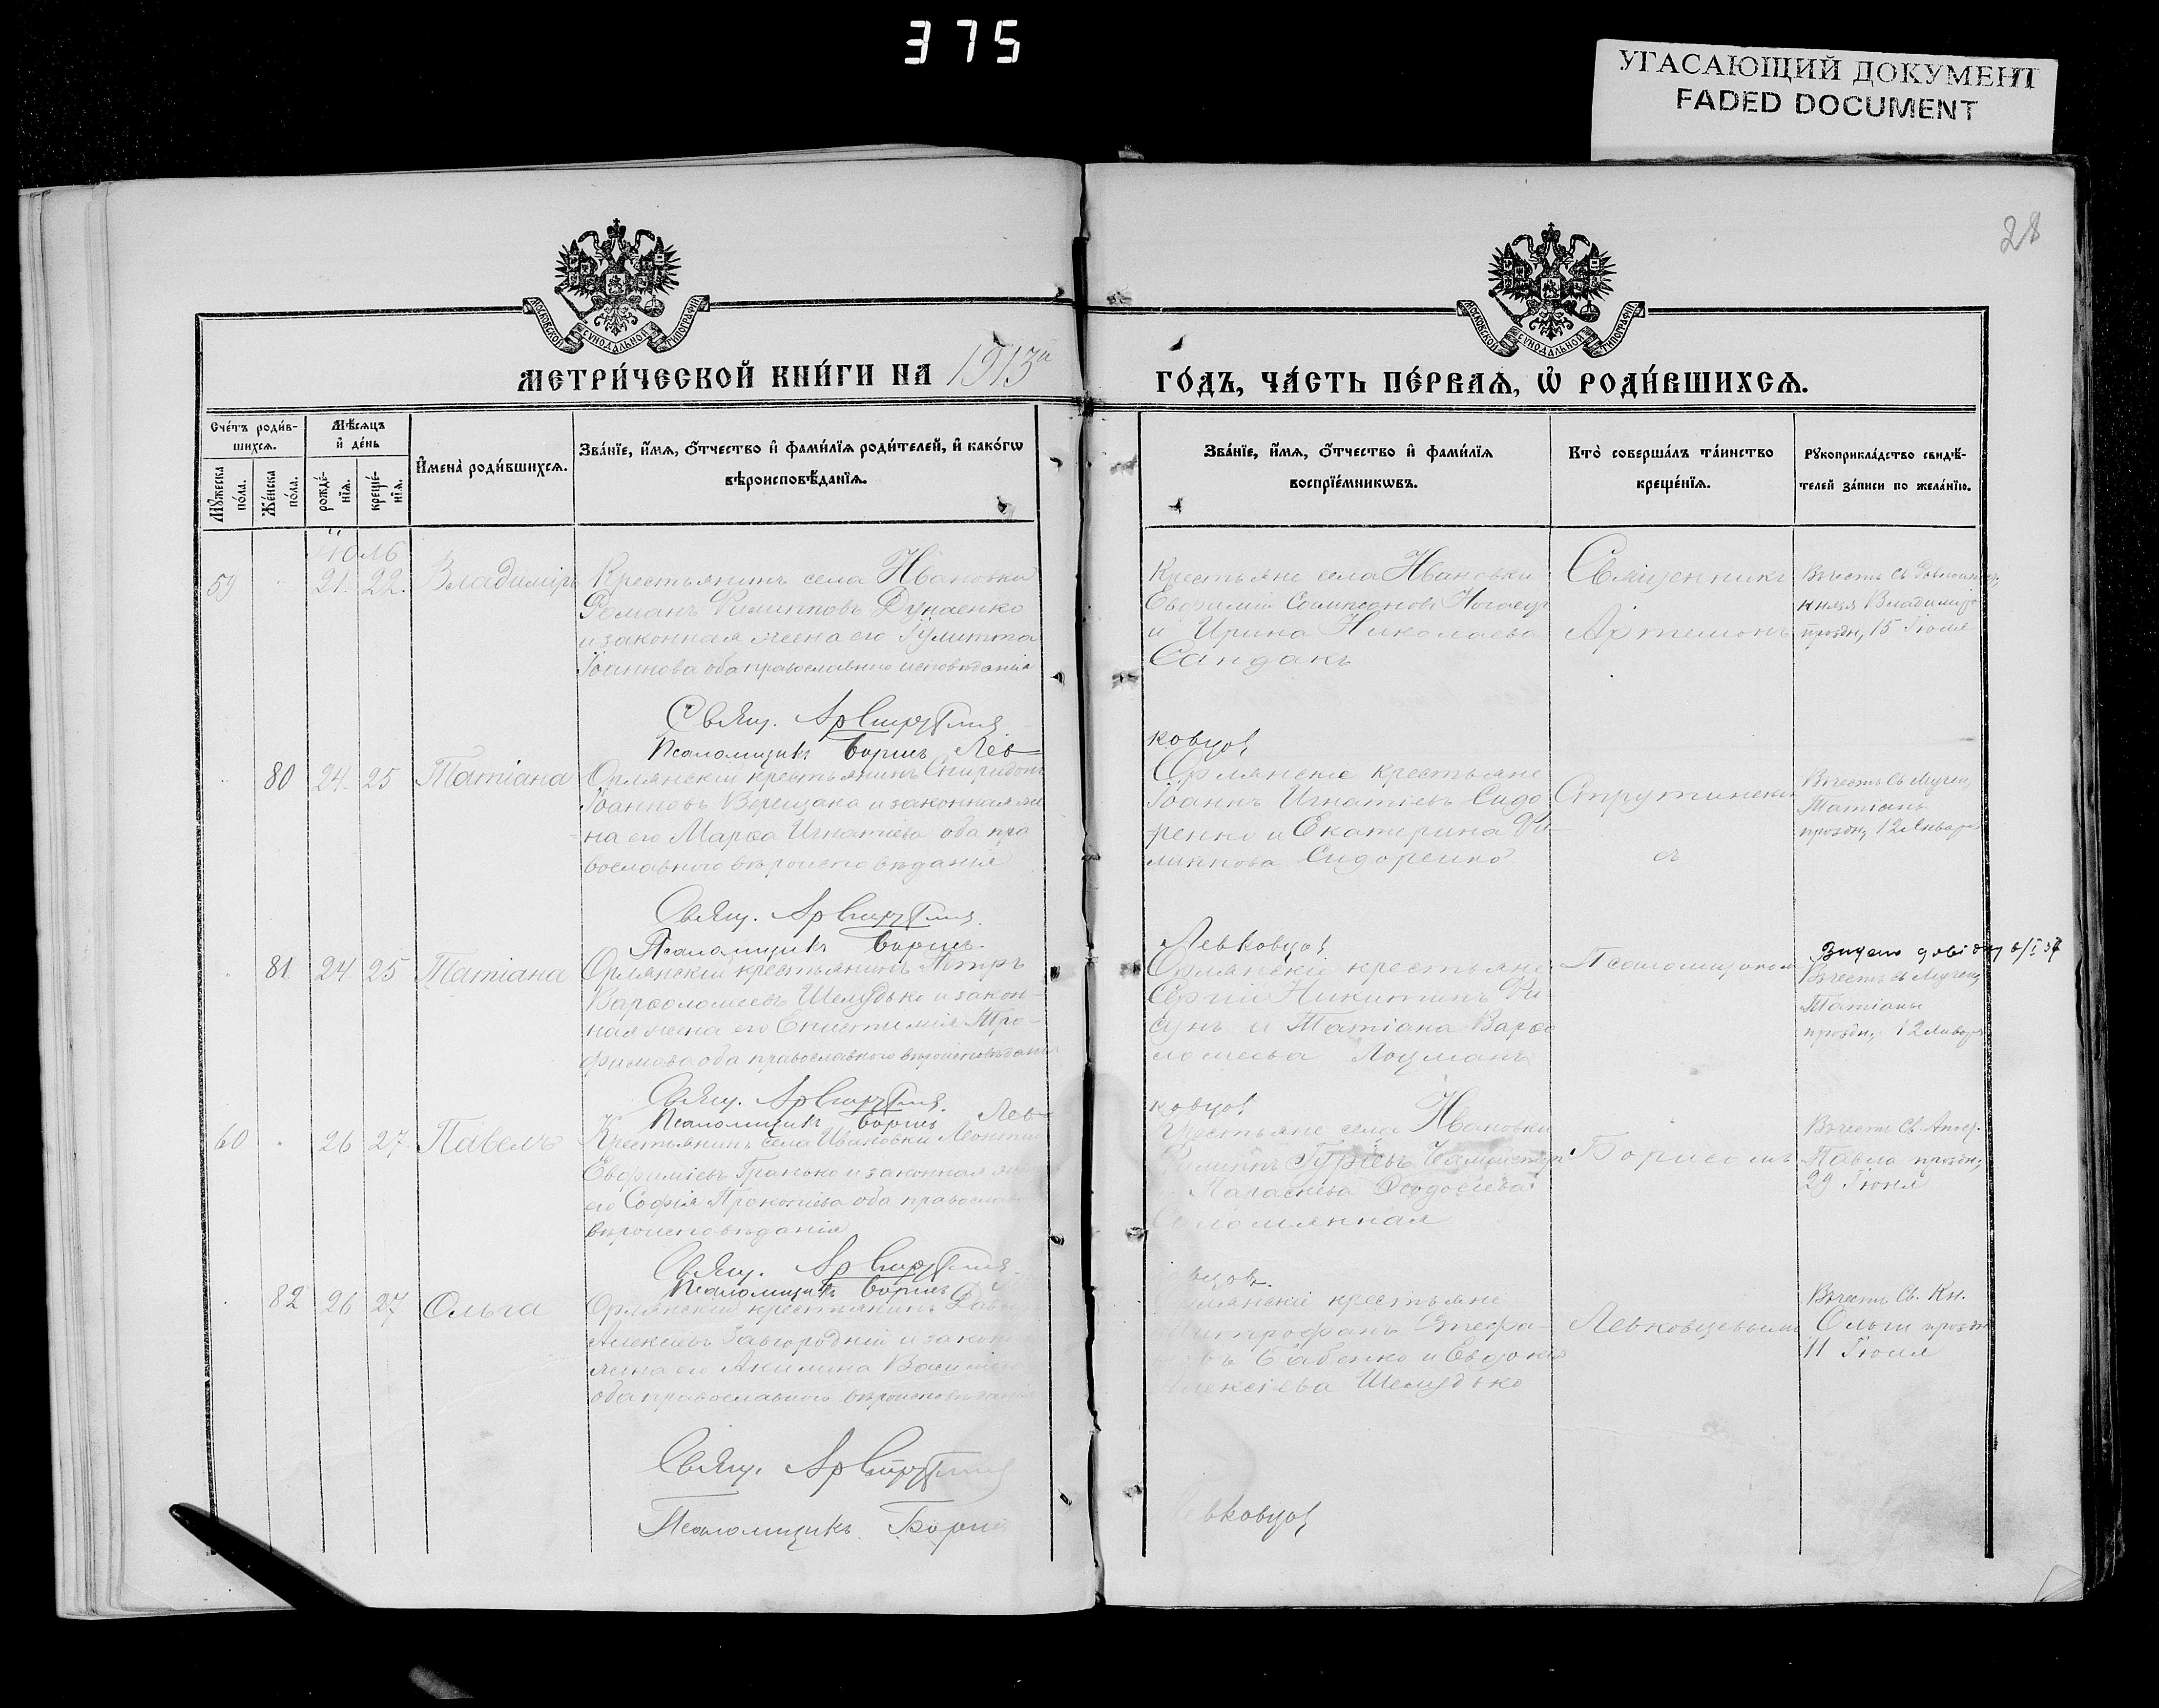 375
УГАСАЮЩИЙ ДОКУМЕНТ
FADED DOCUMENT
28
МОСКОВСКОЙ СѴНОДАЛЬНОЙ ТИПОГРАФІИ
МОСКОВСКОЙ СѴНОДАЛЬНОЙ ТИПОГРАФІИ
МЕТРИ́ЧЕСКОЙ КНИ́ГИ НА 1913й
ГО́ДЪ, ЧА́СТЬ ПЕ́РВАѦ, Ѡ РОДИ́ВШИХСѦ.
Сче́тъ роди́в-
шихсѧ.
Мꙋжеска по́ла.
Же́нска по́ла.
Мѣ́сѧцъ и҆ де́нь
рожде́-
нїѧ.
креще́-
нїѧ.
И҆мена̀ роди́вшихсѧ.
Зва́нїе, и҆́мѧ, ѻ҆́тчество и҆ фами́лїѧ роди́телей, и҆ како́гѡ
вѣроисповѣ́данїѧ.
Зва́нїе, и҆́мѧ, ѻ҆́тчество и҆ фами́лїѧ
воспрїе́мникѡвъ.
Кто̀ соверша́лъ та́инство
креще́нїѧ.
Рꙋкоприкла́дство свидѣ́-
телей за́писи по жела́нїю.
Іюль
59 21. 22. Владиміръ
Крестьянинъ села Ивановки
Романъ Филипповъ Дунаенко
и законная жена его Іулитта
Іоаннова оба православнаго исповѣданія
Свящ. Ар Струтинс
Псаломщикъ Борисъ Лев
Крестьяне села Ивановки
Евфимій Самсоновъ Ногаецъ
и Ирина Николаева
Сандакъ
Священникъ
Артемонъ
Въ честь Св Равноап
князя Владиміра
праздн, 15 Іюля
ковцовъ
80 24 25 Татіана
Орлянскій крестьянинъ Спиридонъ
Іоанновъ Верещака и законная же
на его Марѳа Игнатіева оба пра
вославнаго вѣроисповѣданія
Свящ. Ар Струтинс
Псаломщикъ Борисъ
Орлянскіе крестьяне
Іоаннъ Игнатіевъ Сидо
ренко и Екатерина Фи-
липпова Сидоренко
Струтинскій
съ
Въ честь Св Мучен,
Татіаны
праздн, 12 Января
Левковцовъ
81 24 25 Татіана
Орлянскій крестьянинъ Петръ
Варѳоломеевъ Шелудько и закон-
ная жена его Епистимія Тро-
фимова оба православнаго вѣроисповѣданія
Свящ. Ар Струтинс
Псаломщикъ Борисъ Лев
Орлянскіе крестьяне
Сергій Никитинъ Ри-
сунъ и Татіана Варѳо
ломеева Лоцманъ
Псаломщикомъ
Видано довідку
Въ честь Св Мучен,
Татіаны
праздн, 12 Января
ковцовъ
60 26 27 Павелъ
Крестьянинъ села Ивановки Леонтій
Евфиміевъ и законная же
его Софія Прокопіева оба православ
вѣроисповѣданія
Свящ. Ар Струтинс
Псаломщикъ Борисъ
Крестьяне села Ивановки
Филиппъ Гурьевъ
Параскева Ѳеодосіева
Соломянная
Борисомъ
Въ честь Св. Апост.
Павла праздн,
29 Іюня
вцовъ.
82 26 27 Ольга
Орлянскій крестьянинъ Дави
Алексіевъ Завгородній и закон
жена его Акилина Василіева
оба православнаго вѣроисповѣданія
Свящ. Ар Струтинс
Псаломщикъ Борис
Орлянскіе крестьяне
Митрофанъ Стефа-
въ Бабенко и Евдокія
Алексіева Шелудько
Левковцевымъ
Въ честь Св. Кн.
Ольги праздн
11 Іюля
Левковцовъ